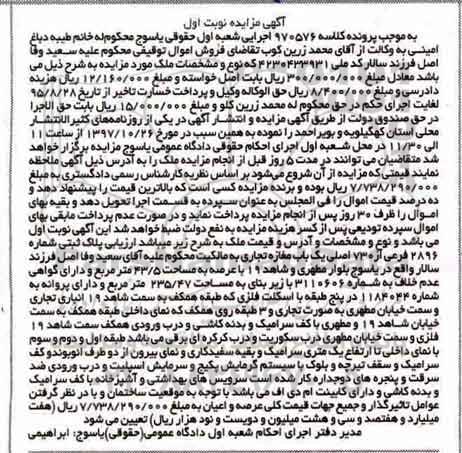 آگهی مزایده نوبت اول
به موجب پرونده کلاسه ۹۷۰۵۷۶ اجرایی شعبه اول حقوقی یاسوج محکوم‌له خانم طیبه دباغ
امینی به وکالت از آقای محمد زرین کوب تقاضای فروش اموال توقیفی محکوم علیه سعید وفا
اصل فرزند سالار کد ملی ۴۲۳۰۴۳۳۹۳۱ که نوع و مشخصات ملک مورد مزایده به شرح ذیل می
باشد معادل مبلغ ۳۰۰/۰۰۰/۰۰۰ ریال بابت اصل خواسته و مبلغ ۱۲/۱۶۰/۰۰۰ ریال هزینه
دادرسی و مبلغ ۸/۴۰۰/۰۰۰ ریال حق الوکاله وکیل و پرداخت خسارت تاخیر از تاریخ ۹۵/۸/۲۸
لغایت اجرای حکم در حق محکوم له محمد زرین کلو و مبلغ ۱۵/۰۰۰/۰۰۰ ریال بابت حق الاجرا
در حق صندوق دولت از طریق آگهی مزایده و انتشار آگهی در یکی از روزنامه‌های کثیرالانتشار
محلی استان کهگیلویه و بویراحمد را نموده به همین سبب در مورخ ۱۳۹۷/۱۰/۲۶ از ساعت ۱۱
الی ۱۱/۳۰ در محل شعبه اول اجرای احکام حقوقی دادگاه عمومی یاسوج مزایده برگزار خواهد
شد متقاضیان می توانند در مدت ۵ روز قبل از انجام مزایده ملک را به آدرس ذیل آگهی ملاحظه
نمایند قیمتی که مزایده از آن شروع می‌شود بر اساس نظریه کارشناس رسمی دادگستری به مبلغ
۷/۷۳۸/۲۹۰/۰۰۰ ریال بوده و برنده مزایده کسی است که بالاترین قیمت را پیشنهاد دهد و
ده درصد قیمت اموال را فی المجلس به عنوان سپرده به قسمت اجرا تحویل دهد و بقیه بهای
اموال را ظرف ۳۰ روز پس از انجام مزایده پرداخت نماید و در صورت عدم پرداخت مابقی بهای
اموال سپرده تودیعی پس از کسر هزینه مزایده به نفع دولت ضبط خواهد شد این آگهی نوبت اول
می باشد و نوع و مشخصات و آدرس و قیمت ملک به شرح زیر میباشد ارزیابی پلاک ثبتی شماره
۲۸۹۶ فرعی از ۷۳ اصلی یک باب مغازه تجاری به مالکیت محکوم علیه آقای سعید وفا اصل فرزند
سالار واقع در یاسوج بلوار مطهری و شاهد ۱۹ با عرصه به مساحت ۴۳/۵ متر مربع و دارای گواهی
عدم خلاف به شماره ۳۱۱۰۶۰۶ با زیر بنای به مساحت ۲۳۵/۴۷ متر مربع و دارای پروانه به
شماره ۱۱۸۴۰۴۴ در پنج طبقه با اسکلت فلزی که طبقه همکف به سمت شاهد ۱۹ انباری تجاری
و سمت خیابان مطهری به صورت تجاری و ۳ طبقه روی همکف که نمای داخلی طبقه همکف به سمت
خیابان شاهد ۱۹ و مطهری با کف سرامیک و بدنه کاشی و درب ورودی همکف سمت شاهد ۱۹
فلزی و سمت خیابان مطهری درب سکوریت و درب کرکره ای برقی می باشد طبقه اول و دوم و سوم
با نمای داخلی تا ارتفاع یک متری سرامیک و بقیه سفیدکاری و نمای بیرون از دو طرف آنوبوندو کف
سرامیک و سقف تیرچه و بلوک و سیستم گرمایش پکیج و سرمایش اسپلیت و درب ورودی ضد
سرقت و پنجره های دوجداره کار شده است سرویس های بهداشتی و آشپزخانه با کف سرامیک
و بدنه کاشی و دارای کابینت ام دی اف می باشد با توجه به موقعیت ساختمان و با در نظر گرفتن
عوامل تاثیرگذار و جمیع جهات قیمت کلی عرصه و اعیان به مبلغ ۷/۷۳۸/۲۹۰/۰۰۰ ریال (هفت
میلیارد و هفتصد و سی و هشت میلیون و دویست و نود هزار ریال) تعیین می شود
مدیر دفتر اجرای احکام شعبه اول دادگاه عمومی(حقوقی)یاسوج: ابراهیمی